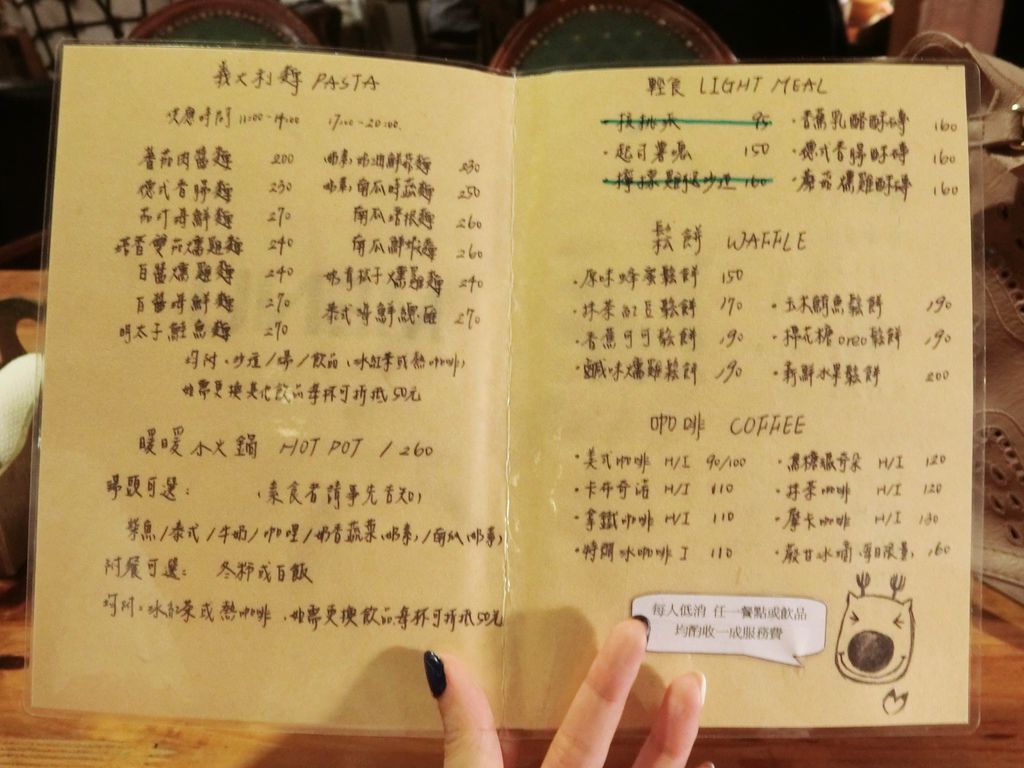 義大利麵 PASTA
供應時間 11:00-14:00 17:00-20:00
蕃茄肉醬麵 200
德式香腸麵 230
茄汁海鮮麵 270
塔香雙茄燻雞麵 240
白醬燻雞麵 240
白醬海鮮麵 270
明太子鮭魚麵 270
奶素 230
奶素,南瓜時蔬麵 250
南瓜培根麵 260
南瓜鮮蝦麵 260
奶青瓜子燻雞麵 240
泰式海鮮總匯 270
均附:沙拉/湯/飲品(冰紅茶或熱咖啡)
如需更換其他飲品每杯可折抵50元
暖暖小火鍋 HOT POT /260
湯頭可選: (素食者請事先告知)
柴魚/泰式/牛奶/咖哩/奶香蔬菜(奶素)/南瓜(奶素)
附餐可選: 冬粉或白飯
均附:冰紅茶或熱咖啡,如需更換飲品每杯可折抵50元
輕食 LIGHT MEAL
·核桃派 95
·起司薯條 150
·檸檬雞腿沙拉 160
·香蕉乳酪酥磚 160
·德式香腸酥磚 160
·蘑菇燻雞酥磚 160
鬆餅 WAFFLE
·原味蜂蜜鬆餅 150
·抹茶紅豆鬆餅 170
·香蕉可可鬆餅 190
·鹹味燻雞鬆餅 190
·玉米鮪魚鬆餅 190
·棉花糖oreo鬆餅 190
·新鮮水果鬆餅 200
咖啡 COFFEE
·美式咖啡 H/I 90/100
·卡布奇諾 H/I 110
·拿鐵咖啡 H/I 110
·特調冰咖啡 I 110
·黑糖瑪奇朵 H/I 120
·抹茶咖啡 H/I 120
·摩卡咖啡 H/I 130
·蔽甘冰滴(每日限量) 160
每人低消 任一餐點或飲品
均酌收一成服務費